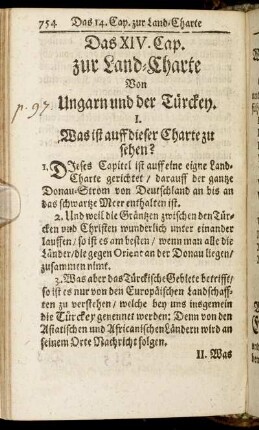 754 Das 14. Cap. zur Land-Charte
Das XIV. Cap.
zur Land-Charte
Von
Ungarn und der Türckey.
p. 97.
I.
Was ist auff dieser Charte zu
sehen?
1. Dieses Capitel ist auff eine eigne Land-
Charte gerichtet / darauff der gantze
Donau-Strom von Deutschland an bis an
das schwartze Meer enthalten ist.
2. Und weil die Gräntzen zwischen den Tür-
cken und Christen wunderlich unter einander
lauffen / so ist es am besten / wenn man alle die
Länder / die gegen Orient an der Donau liegen /
zusammen nimt.
3. Was aber das Türckische Gebiete betrifft /
so ist es nur von den Europäischen Landschaff-
ten zu verstehen / welche bey uns insgemein
die Türckey genennet werden: Denn von den
Asiatischen und Africanischen Ländern wird an
seinem Orte Nachricht folgen.
II. Was